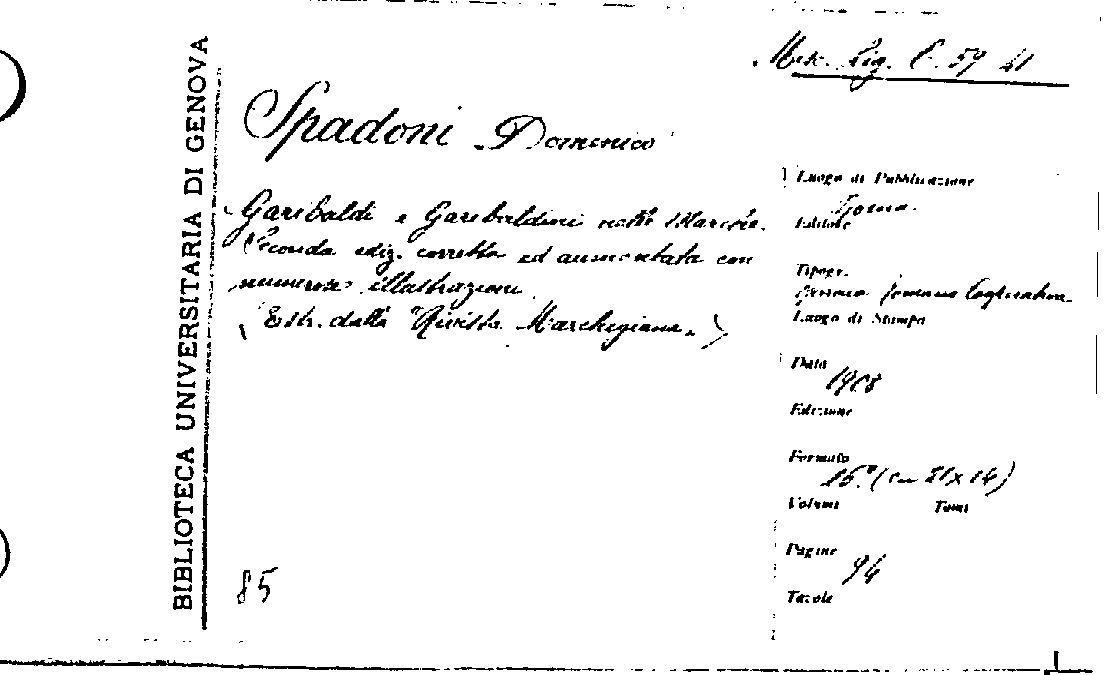 BIBLIOTECA UNIVERSITARIA DI GENOVA
Misc. Lig. C. 59 41
Spadoni Domenico
Garibaldi e Garibaldini nelle Marche.
Seconda ediz. corretta ed aumentata con
numerose illustrazioni
(Estr. dalla Rivista Marchigiana.)
85
Luogo di Pubblicazione
Editore
Tipogr.
Luogo di Stampa
Data
1908
Edizione
Formato
16.° (cm 21x14)
Volumi Tomi
Pagine
94
Tavole